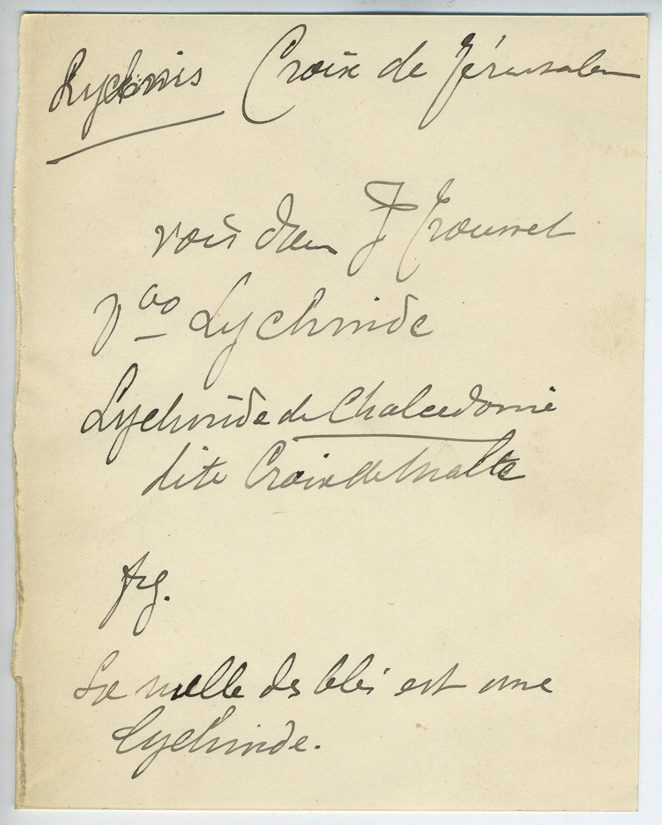 Lychnis Croix de Jérusalem
voir dans J Trousset
Vᵒ Lychnide
Lychnide de Chalcédonie
dite Croix de Malte
fig.
La nielle des blés est une
Lychnide.